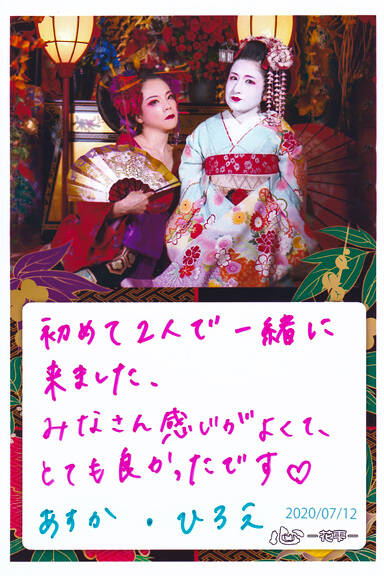 初めて2人で一緒に
来ました、
みなさん感じがよくて、
とても良かったです♡
あすか・ひろえ
2020/07/12
心-花雫-